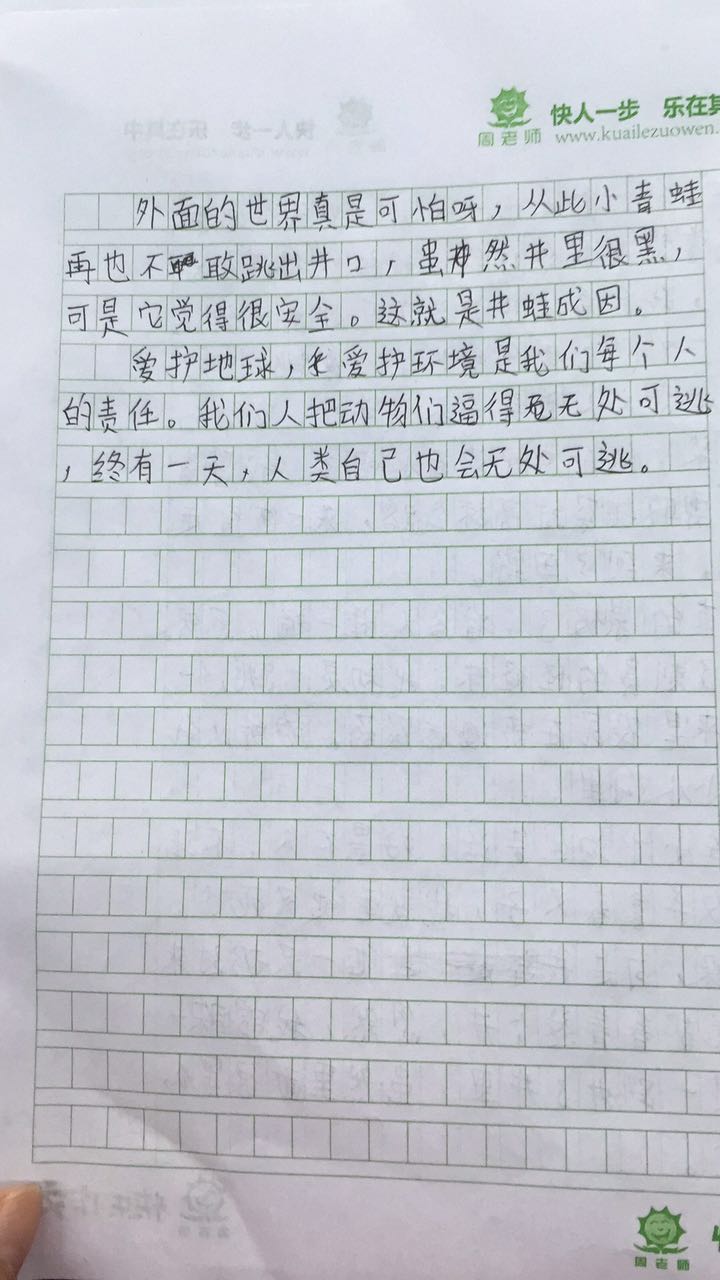 快人一步 乐在其
周老师 www.kuailezuowen.
外面的世界真是可怕呀，从此小青蛙
再也不敢跳出井口，虽然井里很黑，
可是它觉得很安全。这就是井蛙成因。
爱护地球，爱护环境是我们每个人
的责任。我们人把动物们逼得无处可逃
，终有一天，人类自己也会无处可逃。
周老师